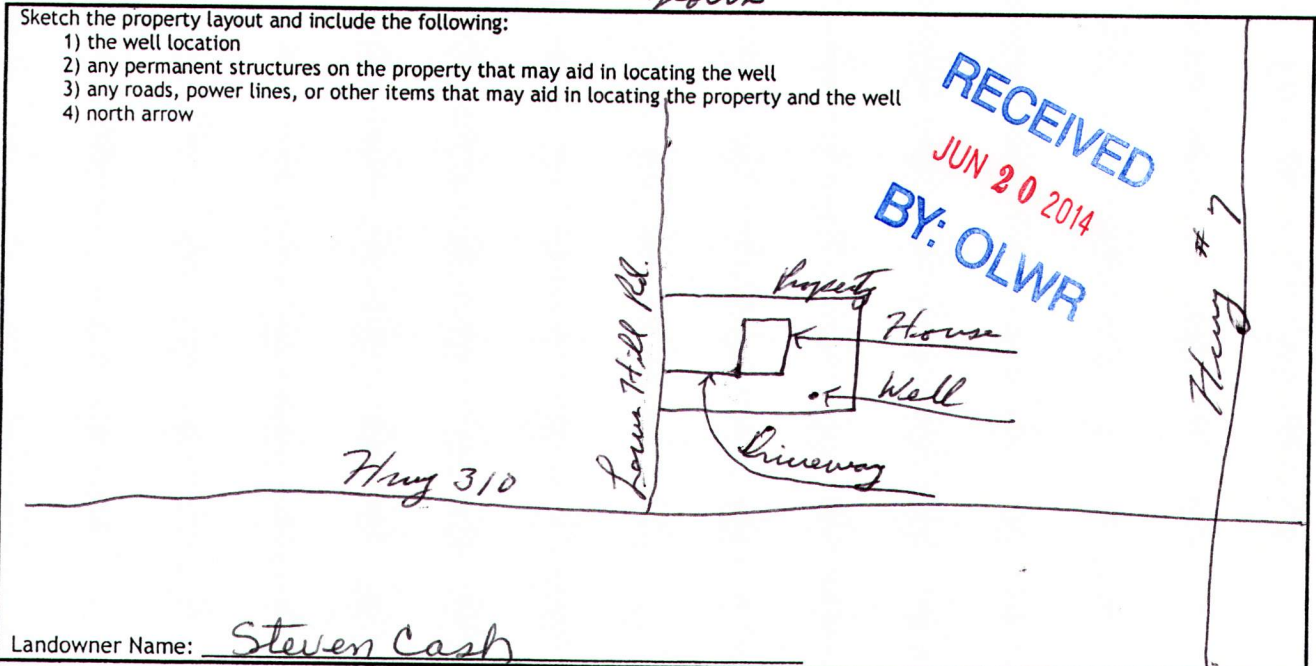 Sketch the property layout and include the following:
1) the well location
2) any permanent structures on the property that may aid in locating the well
3) any roads, power lines, or other items that may aid in locating the property and the well
4) north arrow
RECEIVED
JUN 20 2014
BY: OLWR
Property
House
Well
Driveway
Hill Rd.
Hwy # 7
Hwy 310
Landowner Name: Steven Cash